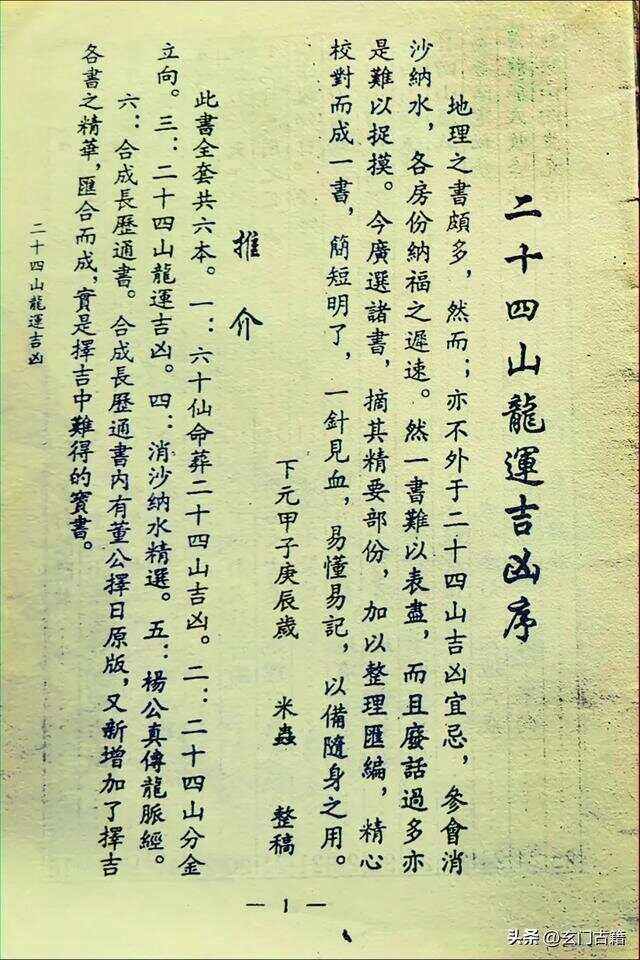 二十四山龍運吉凶序
地理之書頗多，然而；亦不外于二十四山吉凶宜忌，參會消
沙納水，各房份納福之遲速。然一書難以表盡，而且廢話過多亦
是難以捉摸。今廣選諸書，摘其精要部份，加以整理匯編，精心
校對而成一書，簡短明了，一針見血，易懂易記，以備隨身之用。
下元甲子庚辰歲 米蟲 整稿
推介
此書全套共六本。一：六十仙命葬二十四山吉凶。二：二十四山分金
立向。三：二十四山龍運吉凶。四：消沙納水精選。五：楊公真傳龍脈經。
六：合成長歷通書。合成長歷通書內有董公擇日原版，又新增加了擇吉
各書之精華，匯合而成，實是擇吉中難得的寶書。
二十四山龍運吉凶
— 1 —
头条 @玄门古籍